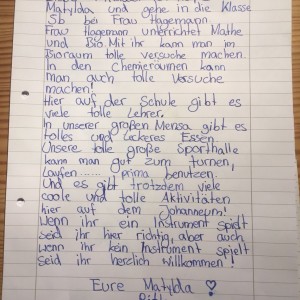 Matylda und gehe in die Klasse
5b bei Frau Hagemann
Frau Hagemann unterrichtet Mathe
und Bio. Mit ihr kann man im
Bioraum tolle versuche machen.
In den Chemieräumen kann
man auch tolle Versuche
machen!
Hier auf der Schule gibt es
viele tolle Lehrer.
In unserer großen Mensa gibt es
tolles und leckeres Essen.
Unsere tolle große Sporthalle
kann man gut zum turnen,
laufen...... prima benutzen.
Und es gibt trotzdem viele
coole und tolle Aktivitäten
hier auf dem Johanneum!
Wenn ihr ein Instrument spielt
seid ihr hier richtig, aber auch
wenn ihr kein Instrument spielt
seid ihr herzlich willkommen!
Eure Matylda